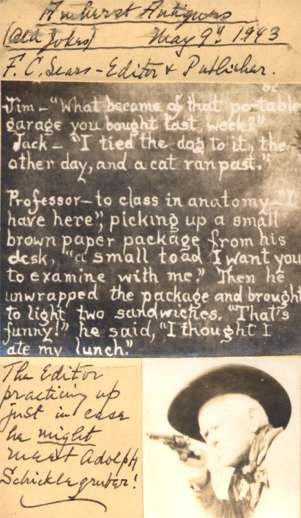 Amherst Antiquers
(Old Jokes) May 9th 1943
F. C. Sears - Editor & Publisher.
Jim - "What became of that po-table
garage you bought last week?"
Jack - "I tied the dog to it, the
other day, and a cat ran past."
Professor - to class in anatomy - "I
have here", picking up a small
brown paper package from his
desk, "a small toad I want you
to examine with me." Then he
unwrapped the package and brought
to light two sandwiches. "That's
funny!" he said, "I thought I
ate my lunch."
The Editor
practicing up
just in case
he might
meet Adolph
Schicklegruber!